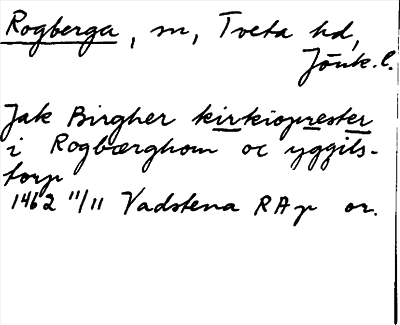 Rogberga, sn, Tveta hd,
Jönk. l.
Jak Birgher kirkioprester
i Rogbærghom oc yggils-
torp
1462 11/11 Vadstena RAp or.